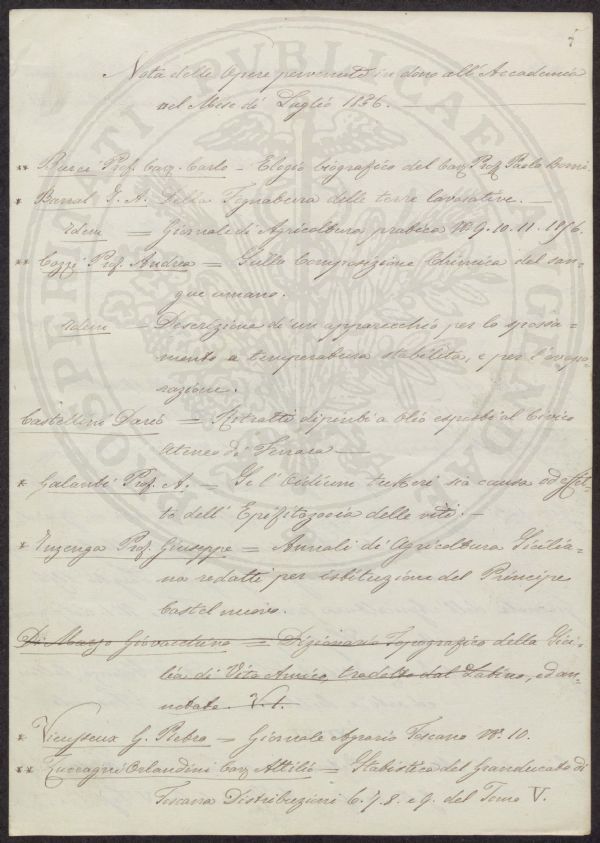 7
Nota delle Opere pervenute in dono all'Accademia
nel Mese di Luglio 1856.
** Burci Prof. Cav. Carlo - Elogio biografico del Cav. Prof. Paolo
* Barral I. A. Della Fognatura delle terre lavorative. -
Idem = Giornali di Agricoltura pratica N. 9. 10. 11. 1856.
** Cozzi Prof. Andrea = Sulla Composizione Chimica del san-
gue umano.
Idem - Descrizione di un apparecchio per lo spossa-
mento a temperatura stabilita, e per l'evapo-
razione.
Castellini Dario = Ritratti dipinti a Olio esposti al Civico
Ateneo di Ferrara -
* Galanti Prof. A. - Se l'Oidium tuckeri sia causa od effet-
to dell'Epifitozoria delle viti. -
* Inzenga Prof. Giuseppe = Annali di Agricoltura Sicilia-
na redatti per istituzione del Principe
Castelnuovo.
Di Marzo Gioacchino = Dizionario Topografico della Sici-
lia di Vito Amico, tradotto dal Latino, ed an-
notato. V. 1.
* Vieusseux G. Pietro = Giornale Agrario Toscano N. 10.
** Zuccagni Orlandini Cav. Attilio = Statistica del Granducato di
Toscana Distribuzioni 6. 7. 8. e 9. del Tomo V.
PROSPERITATI PVBLICAE AVGENDAE